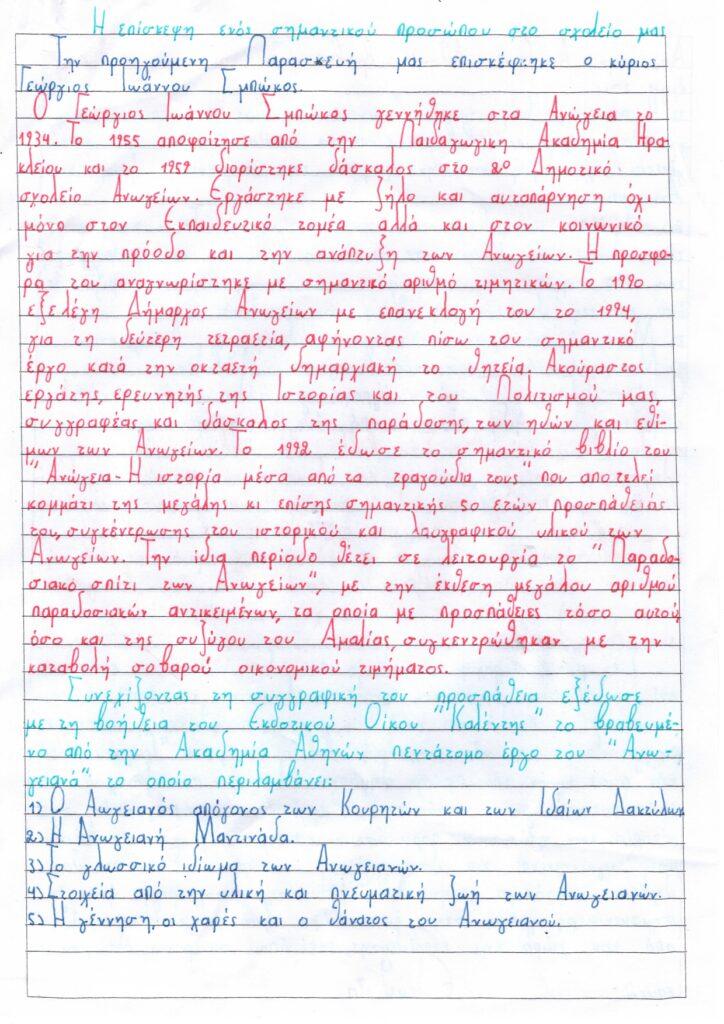 Η επίσκεψη ενός σημαντικού προσώπου στο σχολείο μας
Την προηγούμενη Παρασκευή μας επισκέφθηκε ο κύριος
Γεώργιος Ιωάννου Σμπώκος.
Ο Γεώργιος Ιωάννου Σμπώκος γεννήθηκε στα Ανώγεια το
1934. Το 1955 αποφοίτησε από την Παιδαγωγική Ακαδημία Ηρα-
κλείου και το 1959 διορίστηκε δάσκαλος στο 2ο Δημοτικό
σχολείο Ανωγείων. Εργάστηκε με ζήλο και αυταπάρνηση όχι
μόνο στον Εκπαιδευτικό τομέα αλλά και στον κοινωνικό
για την πρόοδο και την ανάπτυξη των Ανωγείων. Η προσφο-
ρά του αναγνωρίστηκε με σημαντικό αριθμό τιμητικών. Το 1990
εξελέγη Δήμαρχος Ανωγείων με επανεκλογή του το 1994,
για τη δεύτερη τετραετία, αφήνοντας πίσω του σημαντικό
έργο κατά την οκταετή δημαρχιακή το θητεία. Ακούραστος
εργάτης, ερευνητής της Ιστορίας και του Πολιτισμού μας,
συγγραφέας και δάσκαλος της παράδοσης, των ηθών και εθί-
μων των Ανωγείων. Το 1992 έδωσε το σημαντικό βιβλίο του
"Ανώγεια - Η ιστορία μέσα από τα τραγούδια τους" που αποτελεί
κομμάτι της μεγάλης κι επίσης σημαντικής 50 ετών προσπάθειάς
του, συγκέντρωσης του ιστορικού και λαογραφικού υλικού των
Ανωγείων. Την ίδια περίοδο θέτει σε λειτουργία το "Παραδο-
σιακό σπίτι των Ανωγείων", με την έκθεση μεγάλου αριθμού
παραδοσιακών αντικειμένων, τα οποία με προσπάθειες τόσο αυτού,
όσο και της συζύγου του Αμαλίας, συγκεντρώθηκαν με την
καταβολή σοβαρού οικονομικού τιμήματος.
Συνεχίζοντας τη συγγραφική του προσπάθεια εξέδωσε
με τη βοήθεια του Εκδοτικού Οίκου "Καλέντης" το βραβευμέ-
νο από την Ακαδημία Αθηνών πεντάτομο έργο του "Ανω-
γειανά" το οποίο περιλαμβάνει:
1) Ο Αωγειανός απόγονος των Κουρητών και των Ιδαίων Δακτύλων
2) Η Ανωγειανή Μαντινάδα.
3) Το γλωσσικό ιδίωμα των Ανωγειανών.
4) Στοιχεία από την υλική και πνευματική ζωή των Ανωγειανών.
5) Η γέννηση, οι χαρές και ο θάνατος του Ανωγειανού.